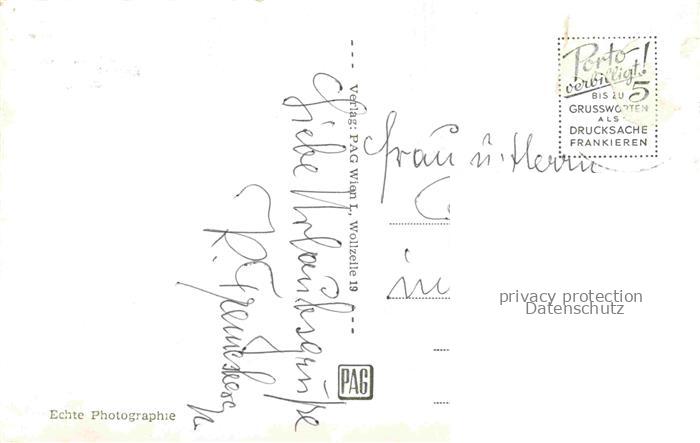 Liebe Urlaubsgrüße
Verlag: PAG Wien I., Wollzeile 19
PAG
Echte Photographie
Porto
verbilligt!
BIS ZU 5
GRUSSWORTEN
ALS
DRUCKSACHE
FRANKIEREN
Frau u. Herrn
in
privacy protection
Datenschutz